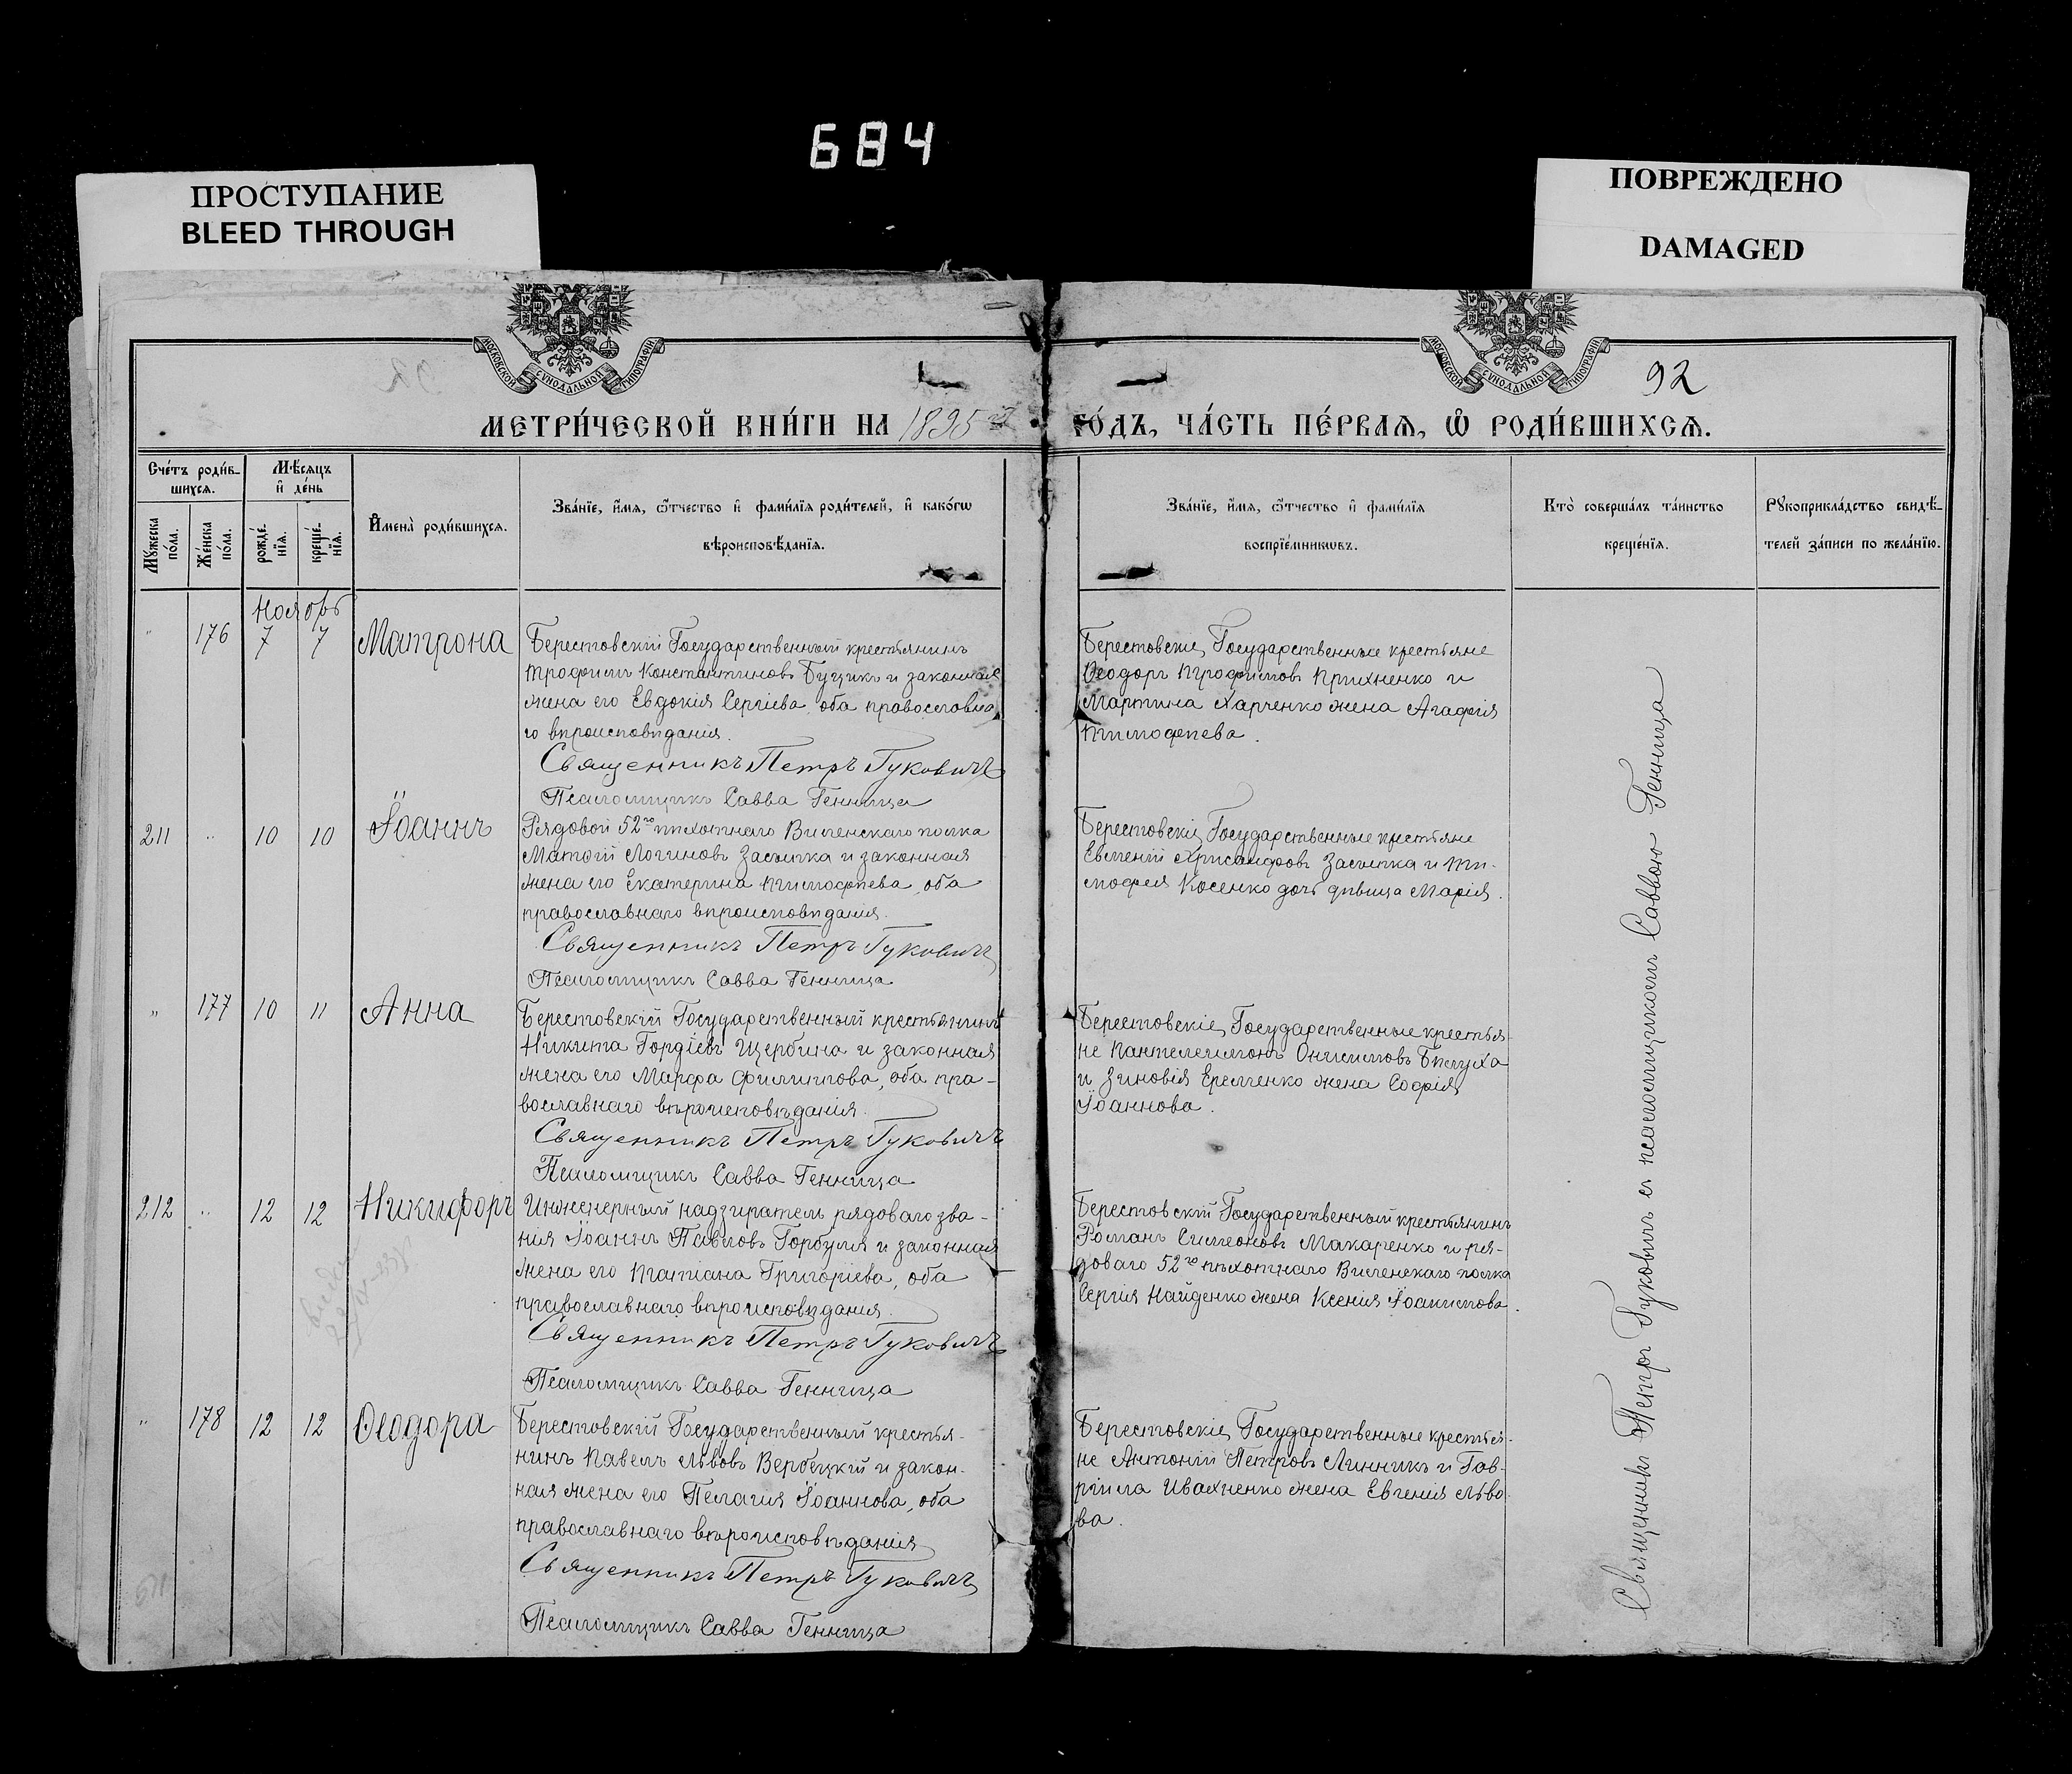 684
ПРОСТУПАНИЕ
BLEED THROUGH
ПОВРЕЖДЕНО
DAMAGED
МОСКОВСКОЙ СѴНОДАЛЬНОЙ ТИПОГРАФІИ
МОСКОВСКОЙ СѴНОДАЛЬНОЙ ТИПОГРАФІИ
92
МЕТРИ́ЧЕСКОЙ КНИ́ГИ НА 1895 ГО́ДЪ, ЧА́СТЬ ПЕ́РВАѦ, Ѡ҆ РОДИ́ВШИХСѦ.
Сче́тъ роди́в-
шихсѧ.
Мѣ́сѧцъ
и҆ де́нь
Мꙋ́жеска
по́ла.
Же́нска
по́ла.
рожде́-
нїѧ.
креще́-
нїѧ.
И҆мена̀ роди́вшихсѧ.
Зва́нїе, и҆́мѧ, ѻ҆́тчество и҆ фами́лїѧ роди́телей, и҆ како́гѡ
вѣроисповѣ́данїѧ.
Зва́нїе, и҆́мѧ, ѻ҆́тчество и҆ фами́лїѧ
воспрїе́мникѡвъ.
Кто̀ соверша́лъ та́инство
креще́нїѧ.
Рꙋкоприкла́дство свидѣ́-
телей за́писи по жела́нїю.
Ноябрь
" 176 7 7 Матрона
Берестовскій Государственный крестьянинъ
Трофимъ Константиновъ Буцикъ и законная
жена его Евдокія Сергіева, оба православна
го вѣроисповѣданія.
Священникъ Петръ Гуковичъ
Псаломщикъ Савва Генница
Берестовскіе Государственные крестьяне
Ѳеодоръ Трофимовъ Прихненко и
Мартина Харченко жена Агафія
Тимофеева.
211 " 10 10 Іоаннъ
Рядовой 52го пѣхотнаго Виленскаго полка
Матѳій Логиновъ Засыпка и законная
жена его Екатерина Тимофеева, оба
православнаго вѣроисповѣданія.
Священникъ Петръ Гуковичъ
Псаломщикъ Савва Генница
Берестовскіе Государственные крестьяне
Евменій Хрисанфовъ Засыпка и Ти-
мофея Косенко дочь дѣвица Марія.
" 177 10 11 Анна
Берестовскій Государственный крестьянинъ
Никита Гордіевъ Щербина и законная
жена его Марфа Филиппова, оба пра-
вославнаго вѣроисповѣданія.
Священникъ Петръ Гуковичъ
Псаломщикъ Савва Генница
Берестовскіе Государственные крестья-
не Пантелеимонъ Онисимовъ Бѣлуха
и Зиновія Еременко жена Софія
Іоаннова.
212 " 12 12 Никифоръ
Инженерный надзиратель рядоваго зва-
нія Іоаннъ Павловъ Горбуля и законная
жена его Татіана Григоріева, оба
православнаго вѣроисповѣданія.
Священникъ Петръ Гуковичъ
Псаломщикъ Савва Генница
Берестовскій Государственный крестьянинъ
Романъ Симеоновъ Макаренко и ря-
доваго 52го пѣхотнаго Виленскаго полка
Сергія Найденко жена Ксенія Іоакимова.
" 178 12 12 Ѳеодора
Берестовскій Государственный крестья-
нинъ Павелъ Львовъ Вербецкій и закон-
ная жена его Пелагія Іоаннова, оба
православнаго вѣроисповѣданія
Священникъ Петръ Гуковичъ
Псаломщикъ Савва Генница
Берестовскіе Государственные крестья-
не Антоній Петровъ Линникъ и Гав-
ріила Ивахненко жена Евгенія Льво
ва.
Священникъ Петръ Гуковичъ съ псаломщикомъ Саввою Генница